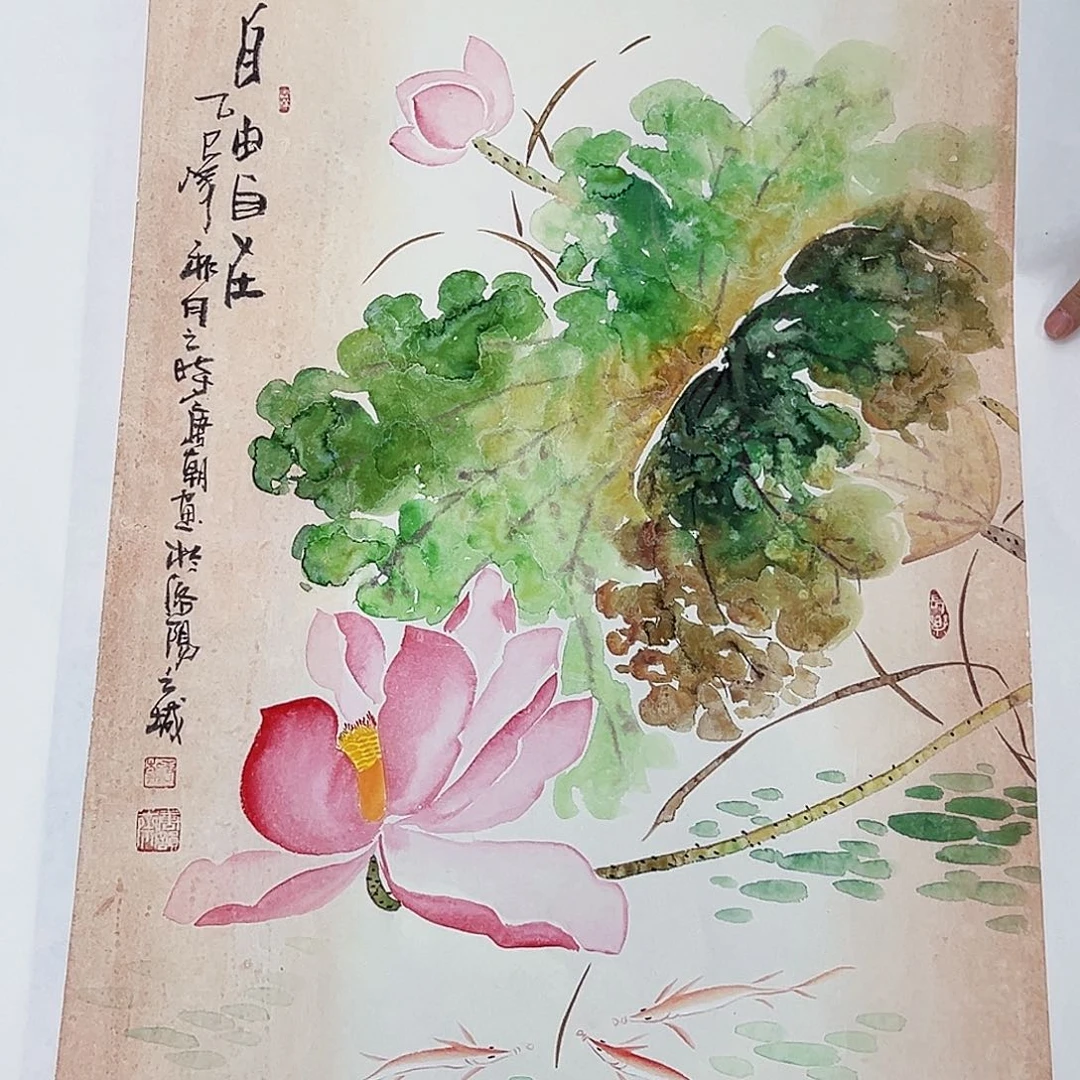 自由自在
乙巳年秋月之時唐朝畫於洛陽之城